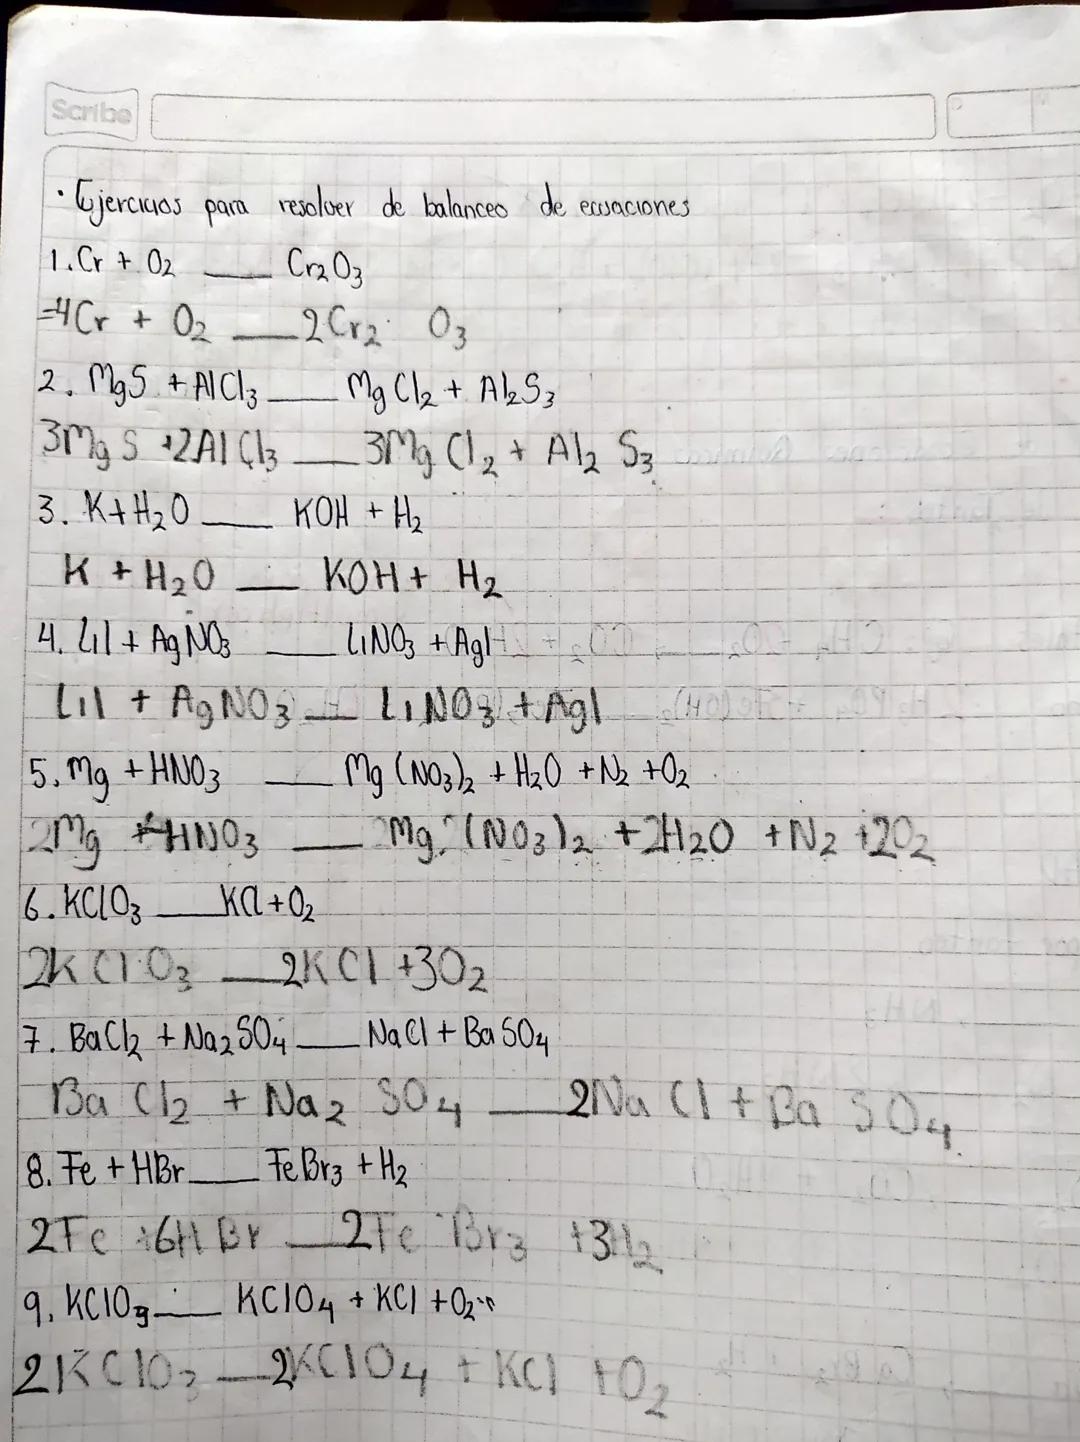 Scribe
· Ejercicios para resolver de balanceo de ecuaciones
1. Cr + O2 ___ Cr2O3
=4Cr + O2 ___ 2Cr2 O3
2. MgS + AlCl3 ___ MgCl2 + Al2S3
3MgS +2AlCl3 ___ 3MgCl2 + Al2 S3
3. K+H2O ___ KOH + H2
K + H2O ___ KOH + H2
4. LiI + AgNO3 ___ LiNO3 + AgI
LiI + AgNO3 ___ LiNO3 + AgI
5. Mg + HNO3 ___ Mg (NO3)2 + H2O + N2 + O2
2Mg +4HNO3 ___ 2Mg (NO3)2 +2H2O +N2 +2O2
6. KClO3 ___ KCl + O2
2KClO3 ___ 2KCl +3O2
7. BaCl2 + Na2SO4 ___ NaCl + BaSO4
Ba Cl2 + Na2 SO4 ___ 2Na Cl + Ba SO4
8. Fe + HBr ___ FeBr3 + H2
2Fe +6HBr ___ 2Fe Br3 +3H2
9. KClO3 ___ KClO4 + KCl + O2
2KClO3 ___ 2KClO4 + KCl + O2